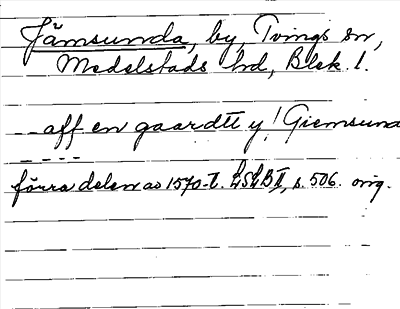 Jämsunda, by, Tvings sn,
Medelstads hd, Blek. l.
-- aff en gaardtt y! Giemsund
----
förra delen av 1570-t. LSLB II, s. 506. orig.